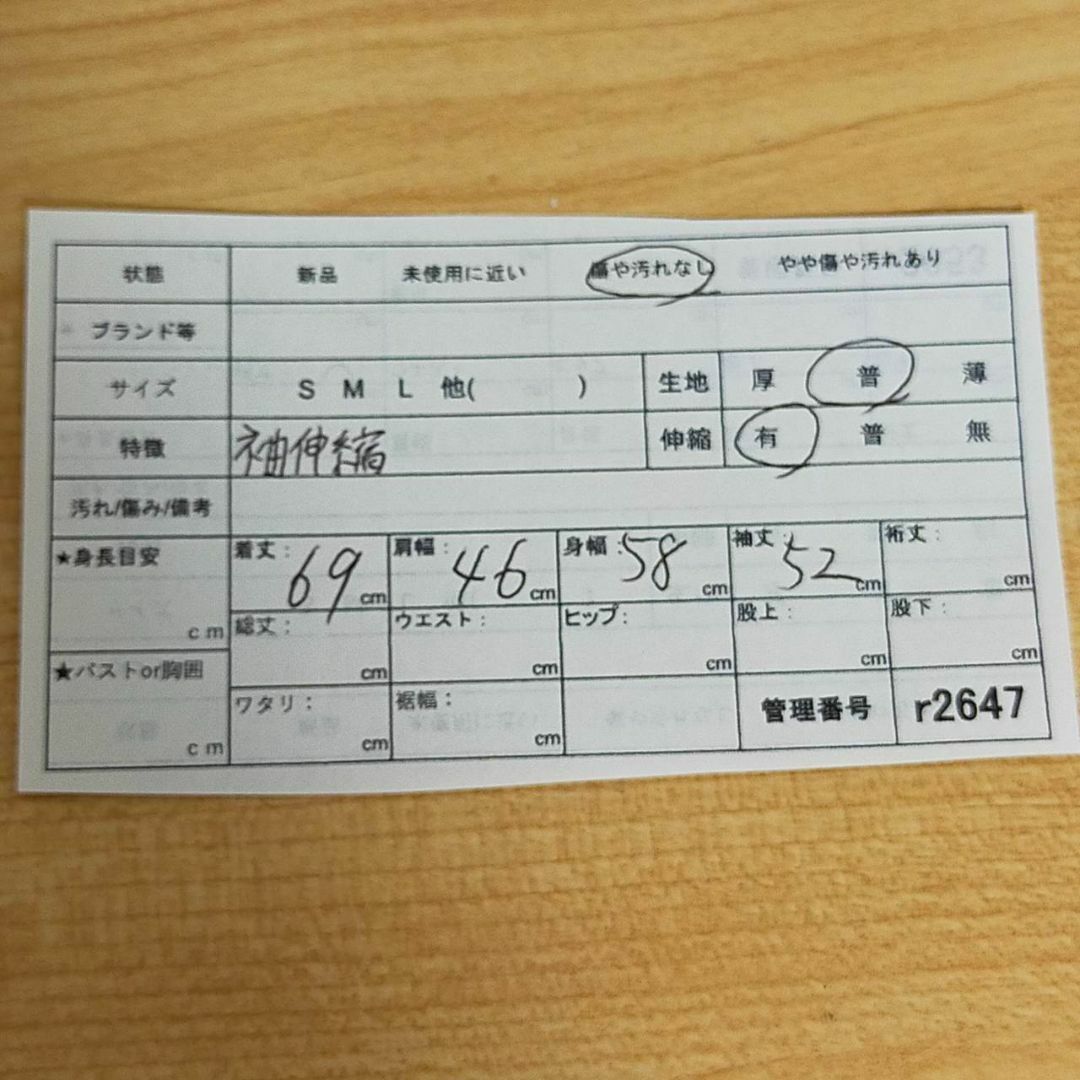 状態 新品 未使用に近い 傷や汚れなし やや傷や汚れあり
ブランド等
サイズ S M L 他( ) 生地 厚 普 薄
特徴 袖伸縮 伸縮 有 普 無
汚れ/傷み/備考
★身長目安 cm
着丈: 69 cm 肩幅: 46 cm 身幅: 58 cm 袖丈: 52 cm 裄丈: cm
総丈: cm ウエスト: cm ヒップ: cm 股上: cm 股下: cm
★バストor胸囲 cm
ワタリ: cm 裾幅: cm 管理番号 r2647